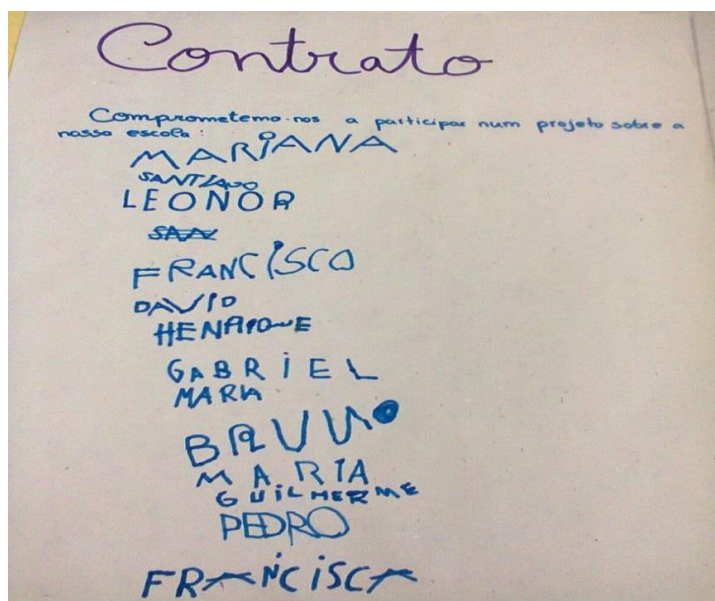 Contrato
Comprometemo-nos a participar num projeto sobre a
nossa escola:
MARIANA
SANTIAGO
LEONOR
FRANCISCO
DAVID
HENRIQUE
GABRIEL
MARIA
BRUNO
MARIA
GUILHERME
PEDRO
FRANCISCA